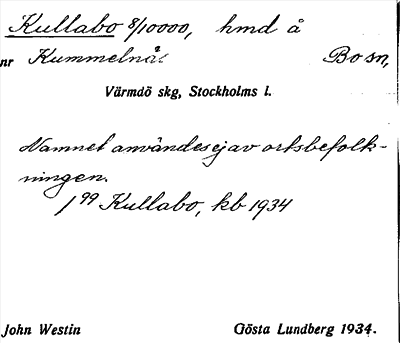 Kullabo 8/10000, hmd å
nr Kummelnäs Bo sn,
Värmdö skg, Stockholms l.
Namnet användes ej av ortsbefolk-
ningen.
1 99 Kullabo, kb 1934
John Westin Gösta Lundberg 1934.